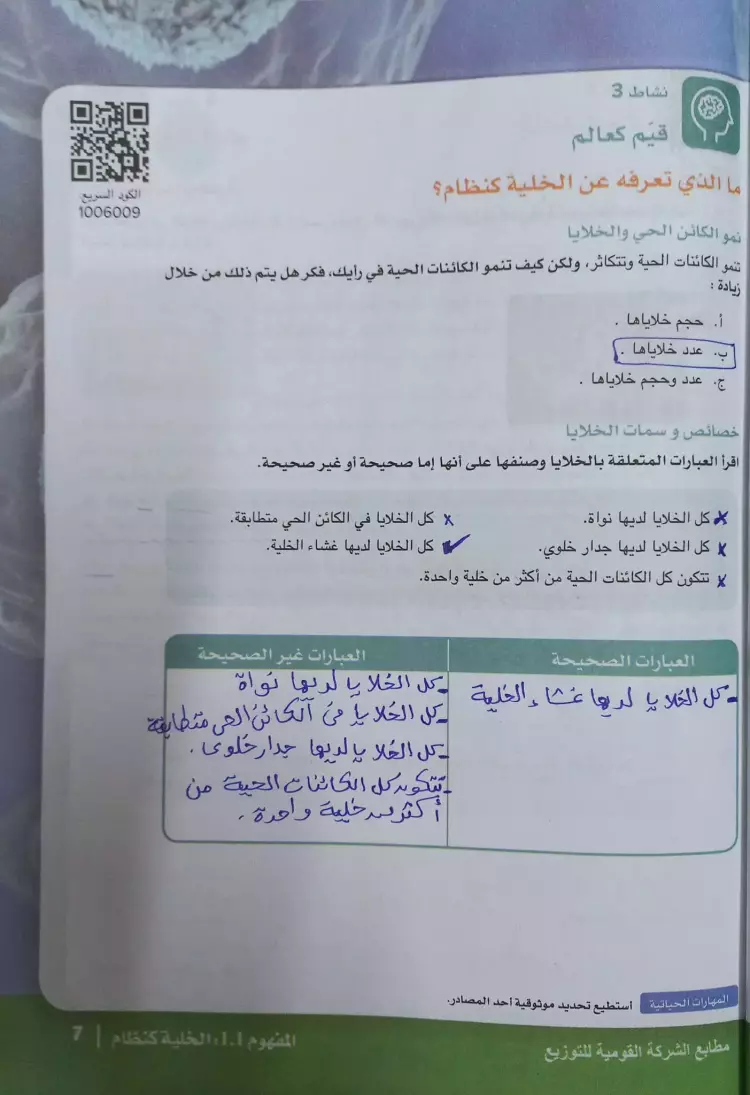 نشاط 3
قيّم كعالم
ما الذي تعرفه عن الخلية كنظام؟
الكود السريع:
1006009
نمو الكائن الحي والخلايا
تنمو الكائنات الحية وتتكاثر، ولكن كيف تنمو الكائنات الحية في رايك، فكر هل يتم ذلك من خلال
زيادة :
أ. حجم خلاياها .
ب. عدد خلاياها .
ج. عدد وحجم خلاياها .
خصائص و سمات الخلايا
اقرأ العبارات المتعلقة بالخلايا وصنفها على أنها إما صحيحة أو غير صحيحة.
x كل الخلايا لديها نواة.
x كل الخلايا في الكائن الحي متطابقة.
x كل الخلايا لديها جدار خلوي.
✓ كل الخلايا لديها غشاء الخلية.
x تتكون كل الكائنات الحية من أكثر من خلية واحدة.
العبارات الصحيحة
- كل الخلايا لديها غشاء الخلية
العبارات غير الصحيحة
- كل الخلايا لديها نواة
- كل الخلايا في الكائن الحي متطابقة
- كل الخلايا لديها جدار خلوي .
- تتكون كل الكائنات الحية من
أكثر من خلية واحدة .
المهارات الحياتية أستطيع تحديد موثوقية أحد المصادر.
مطابع الشركة القومية للتوزيع
المفهوم 1.1: الخلية كنظام | 7